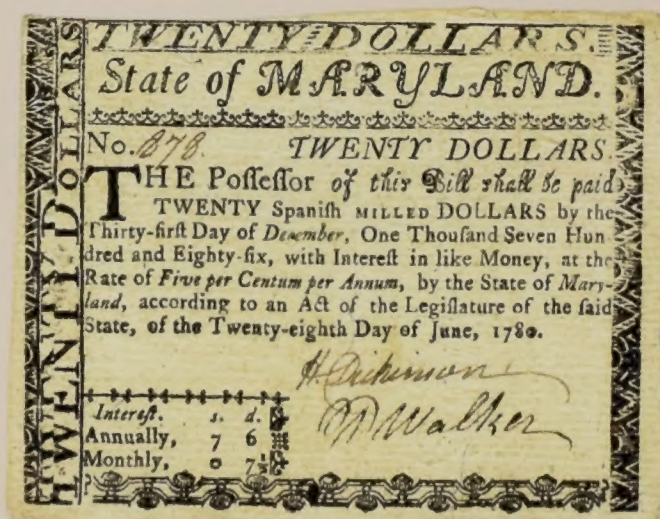 TWENTY DOLLARS
TWENTY DOLLARS.
State of MARYLAND.
No. 878. TWENTY DOLLARS.
THE Poſſeſſor of this Bill shall be paid
TWENTY Spaniſh MILLED DOLLARS by the
Thirty-firſt Day of December, One Thouſand Seven Hun
dred and Eighty-ſix, with Intereſt in like Money, at the
Rate of Five per Centum per Annum, by the State of Mary-
land, according to an Act of the Legiſlature of the ſaid
State, of the Twenty-eighth Day of June, 1780.
H. Dickinson
Walker
Intereſt. s. d.
Annually, 7 6
Monthly, 0 7½